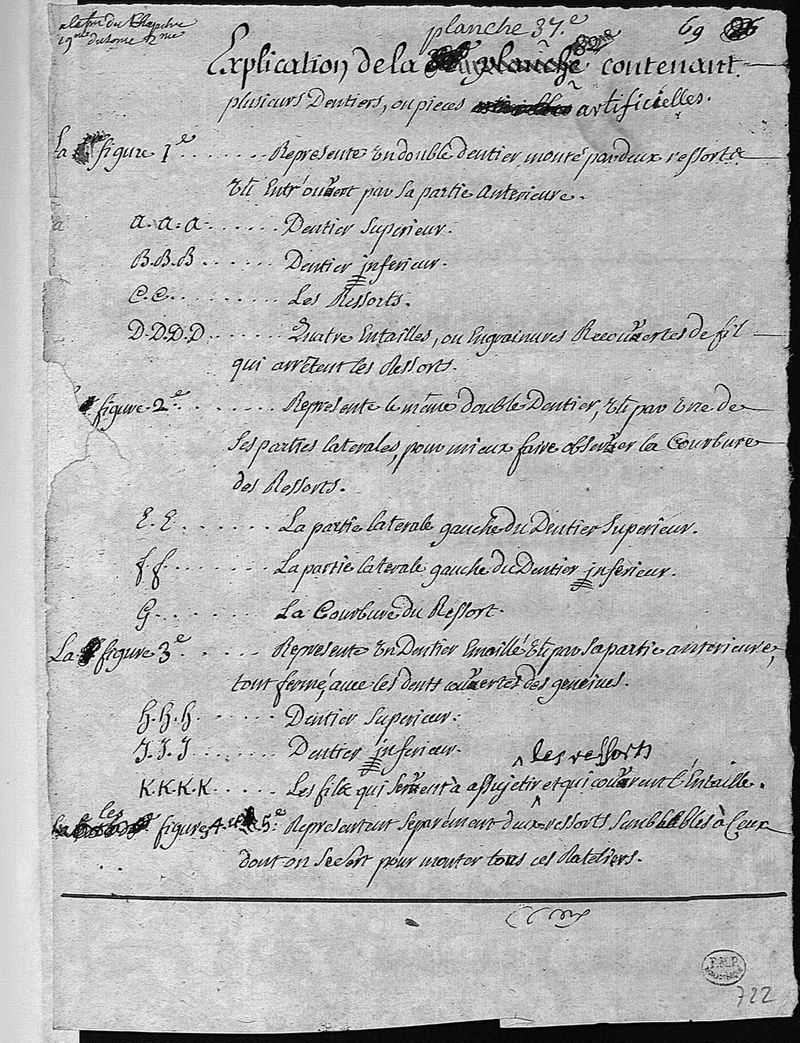 a la fin du Chapitre
19me du tome 2me
planche 37.e
69
Explication de la planche contenant
plusieurs Dentiers, ou pieces artificielles.
La figure 1e ....... Represente un double dentier monté par deux ressorts
et Entr'ouvert par sa partie Anterieure.
a. a. a. ...... Dentier Superieur.
B.B.B ...... Dentier inferieur.
C.C. ........ Les Ressorts.
D.D.D.D ....... Quatre Entailles, ou Engrainures Recouvertes de fil
qui arrêtent les Ressorts.
figure 2e ....... Represente le même double Dentier, vû par une de
Ses parties laterales, pour mieux faire observer la Courbure
des Ressorts.
E. E ....... La partie laterale gauche du Dentier Superieur.
f f ....... La partie laterale gauche du Dentier inferieur.
G. ....... La Courbure du Ressort.
La figure 3e ...... Represente un Dentier Emaillé vû par sa partie anterieure,
tout fermé, avec les dents couvertes des gencives.
h. h. h. ...... Dentier Superieur.
J. J. J ...... Dentier inferieur.
les ressorts
K.K.K.K ..... Les fils qui servent à assujetir et qui couvrent l'Entaille.
les figures 4. et 5.e Representent separément deux ressorts semblables à Ceux
dont on se sert pour monter tous ces Rateliers.
F.M.P.
BIBLIOTHEQUE
722